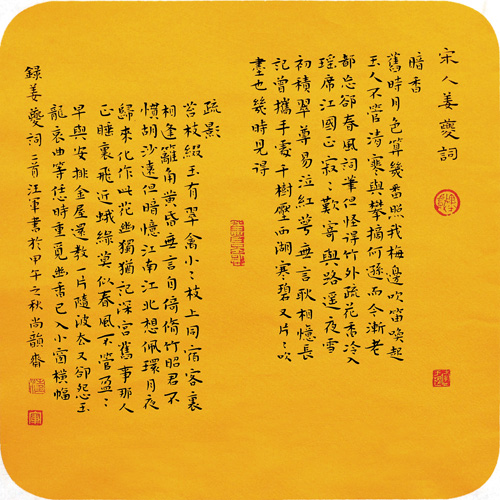 宋人姜夔詞
暗香
舊時月色算幾番照我梅邊吹笛喚起
玉人不管清寒與攀摘何遜而今漸老
都忘卻春風詞筆但怪得竹外疏花香冷入
瑤席江國正寂〻歎寄與路遥夜雪
初積翠尊易泣紅萼無言耿相憶長
記曾攜手處千樹壓西湖寒碧又片〻吹
盡也幾時見得
疏影
苔枝綴玉有翠禽小〻枝上同宿客裏
相逢籬角黃昏無言自倚脩竹昭君不
慣胡沙遠但暗憶江南江北想佩環月夜
歸來化作此花幽獨猶記深宮舊事那人
正睡裏飛近蛾綠莫似春風不管盈〻
早與安排金屋還教一片隨波去又卻怨玉
龍哀曲等恁時重覓幽香已入小窗橫幅
錄姜夔詞二首汪軍書於甲午之秋尚韻齋